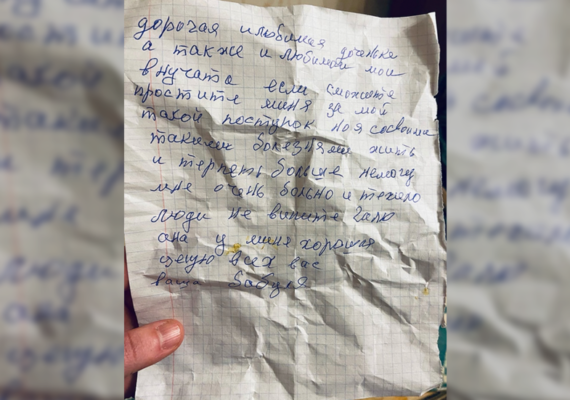 дорогая илюбимая доченька
а также и любимаи мои
внучата если сможите
простите меня за мой
такой поступок ноя сосвоими
такими болезнями жить
и терпеть больше немогу
мне очень больно и тежело
люди не вините Галю
ана у меня хорошая
цылую всех вас
ваша бабуля